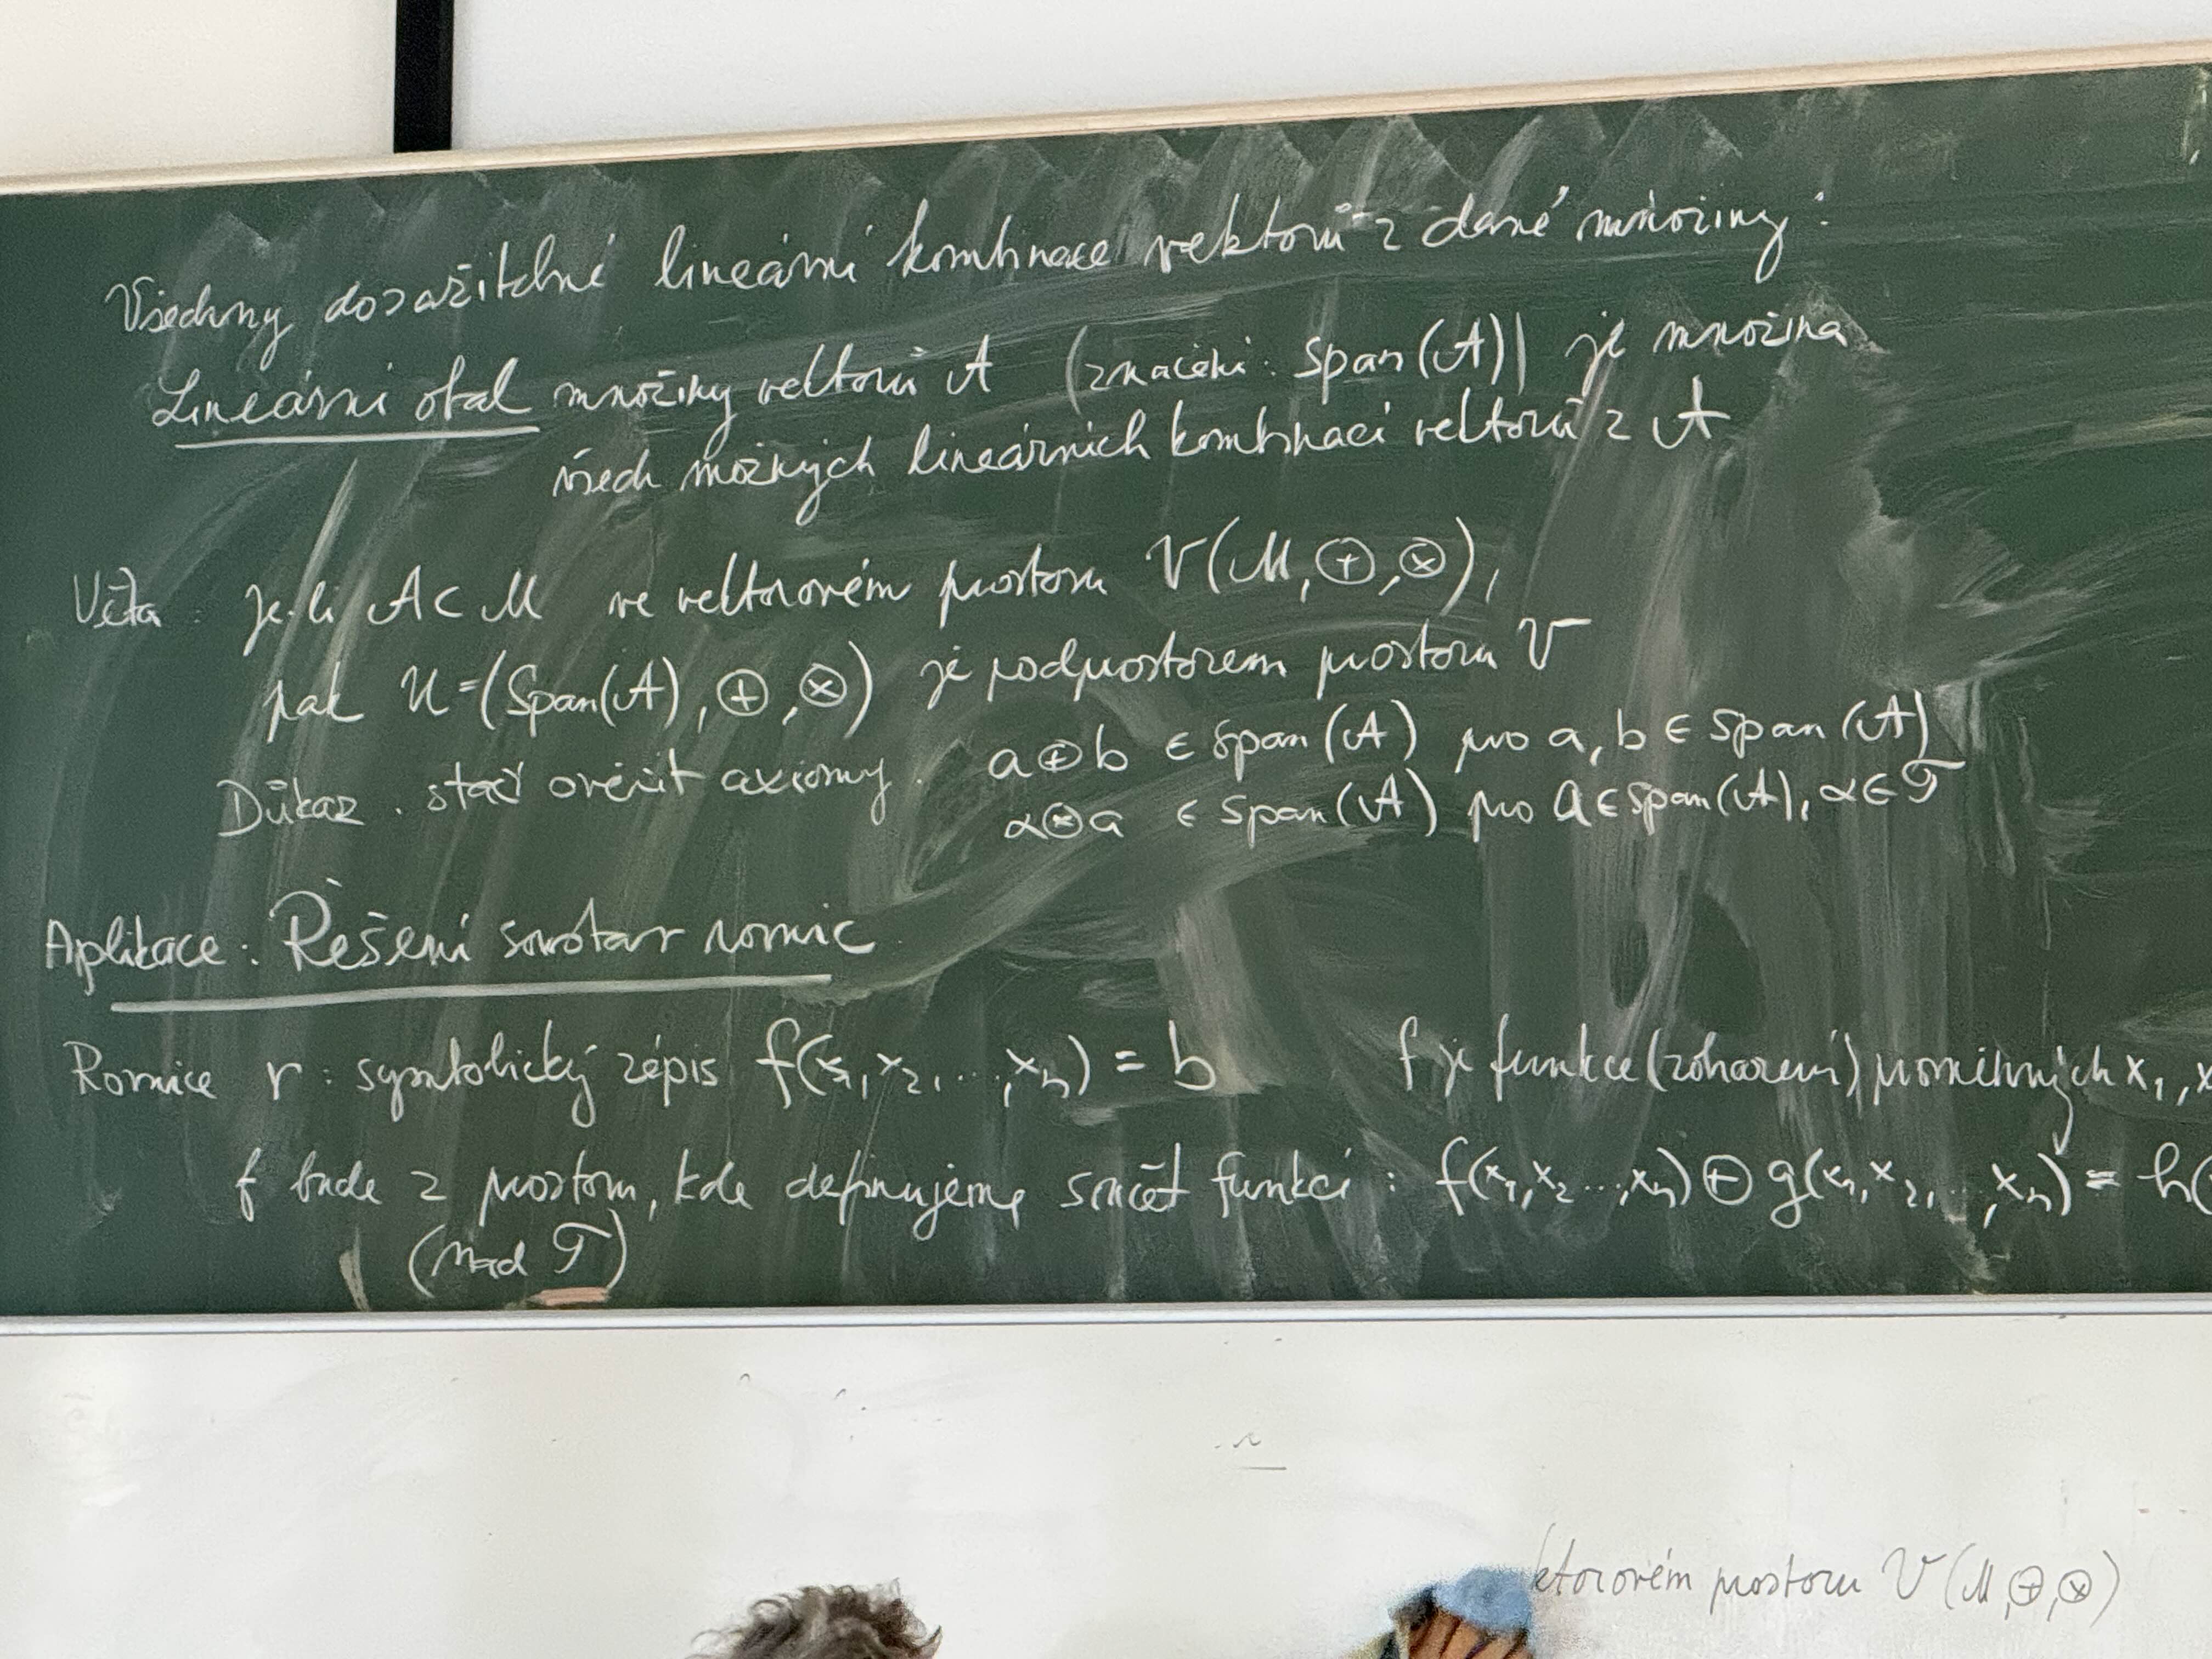 Všechny dosažitelné lineární kombinace vektorů z dané množiny:
Lineární obal množiny vektorů A (značení: Span(A)) je množina
všech možných lineárních kombinací vektorů z A
Věta: Je-li A ⊂ M ve vektorovém prostoru V(M, ⊕, ⊗),
pak U = (Span(A), ⊕, ⊗) je podprostorem prostoru V
Důkaz. stačí ověřit axiomy. a ⊕ b ∈ Span(A) pro a, b ∈ Span(A)
α ⊗ a ∈ Span(A) pro a ∈ Span(A), α ∈ T
Aplikace: Řešení soustav rovnic
Rovnice r: symbolický zápis f(x₁, x₂, ..., xₙ) = b f je funkce (zobrazení) proměnných x₁, x
f bude z prostoru, kde definujeme součet funkcí: f(x₁, x₂ ..., xₙ) ⊕ g(x₁, x₂, ..., xₙ) = h(
(nad T)
ktorovém prostoru V(M, ⊕, ⊗)